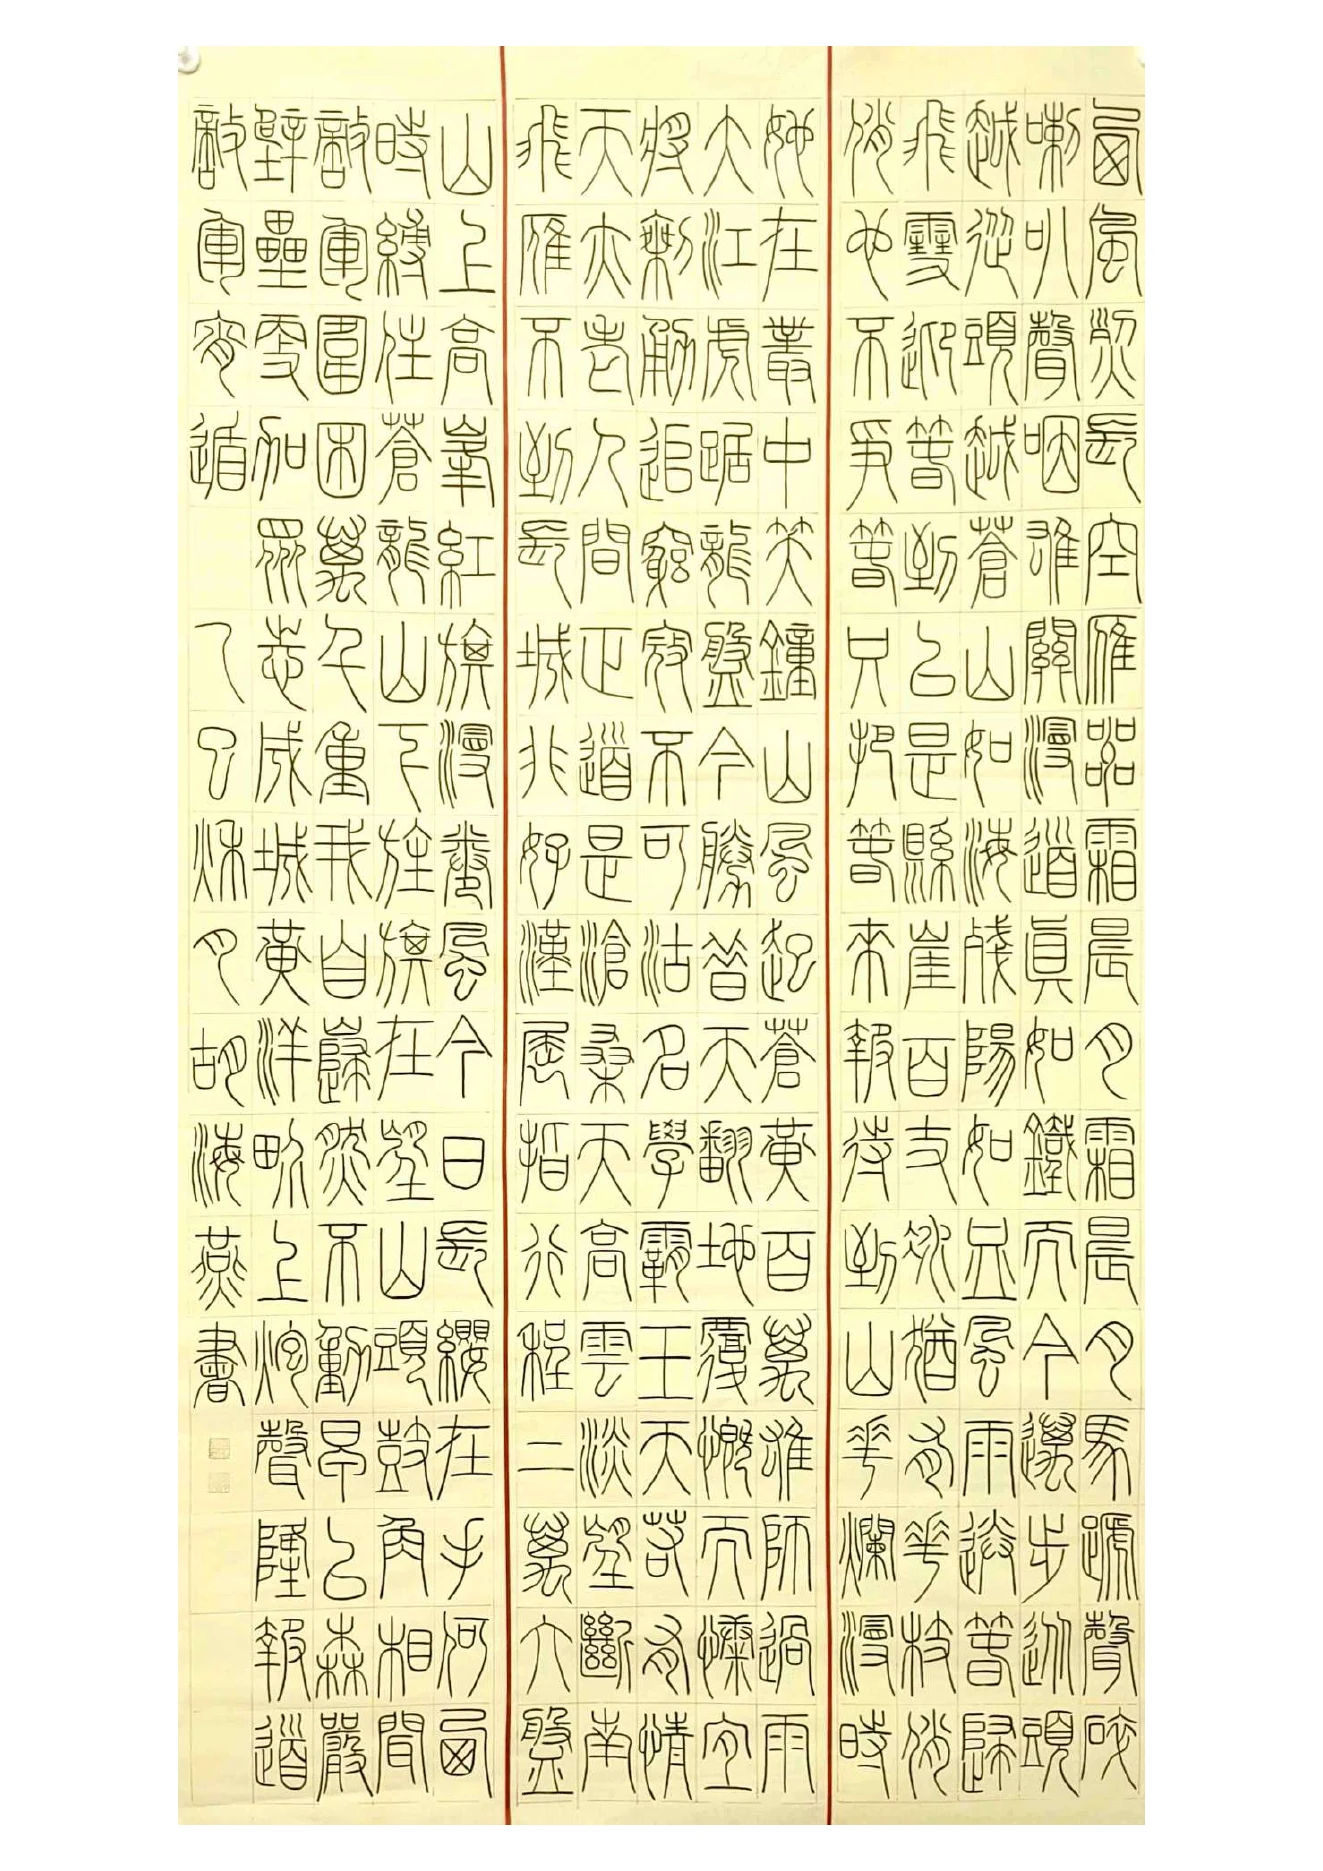 西風烈長空雁叫霜晨月霜晨月馬蹄聲碎
喇叭聲咽雄關漫道真如鐵而今邁步從頭
越從頭越蒼山如海殘陽如血風雨送春歸
飛雪迎春到已是懸崖百丈冰猶有花枝俏
俏也不爭春只把春來報待到山花爛漫時
她在叢中笑鐘山風起蒼黃百萬雄師過雨
大江虎踞龍盤今勝昔天翻地覆慨而慷宜
將剩勇追窮寇不可沽名學霸王天若有情
天亦老人間正道是滄桑天高雲淡望斷南
飛雁不到長城非好漢屈指行程二萬六盤
山上高峯紅旗漫卷風今日長纓在手何西
時縛住蒼龍山下旌旗在望山頭鼓角相聞
敵軍圍困萬千重我自巋然不動早已森嚴
壁壘更加眾志成城黃洋界上炮聲隆報道
敵軍宵遁
乙巳秋月胡海燕書